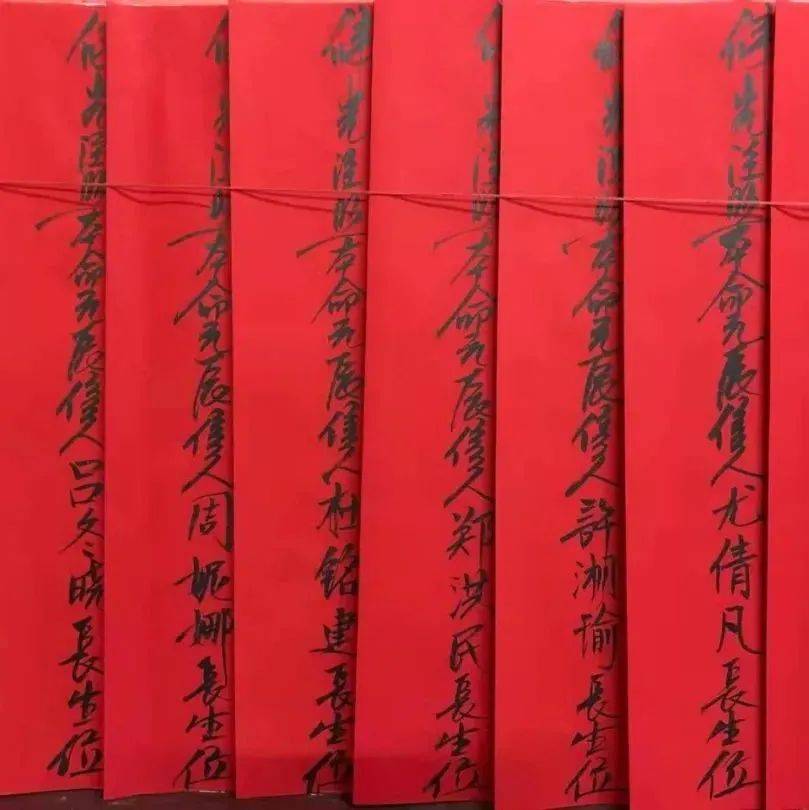 佛光注照本命元辰信人尤倩凡長生位
佛光注照本命元辰信人許湘瑜長生位
佛光注照本命元辰信人郑洪民長生位
佛光注照本命元辰信人杜銘建長生位
佛光注照本命元辰信人周妮娜長生位
佛光注照本命元辰信人吕冬晓長生位